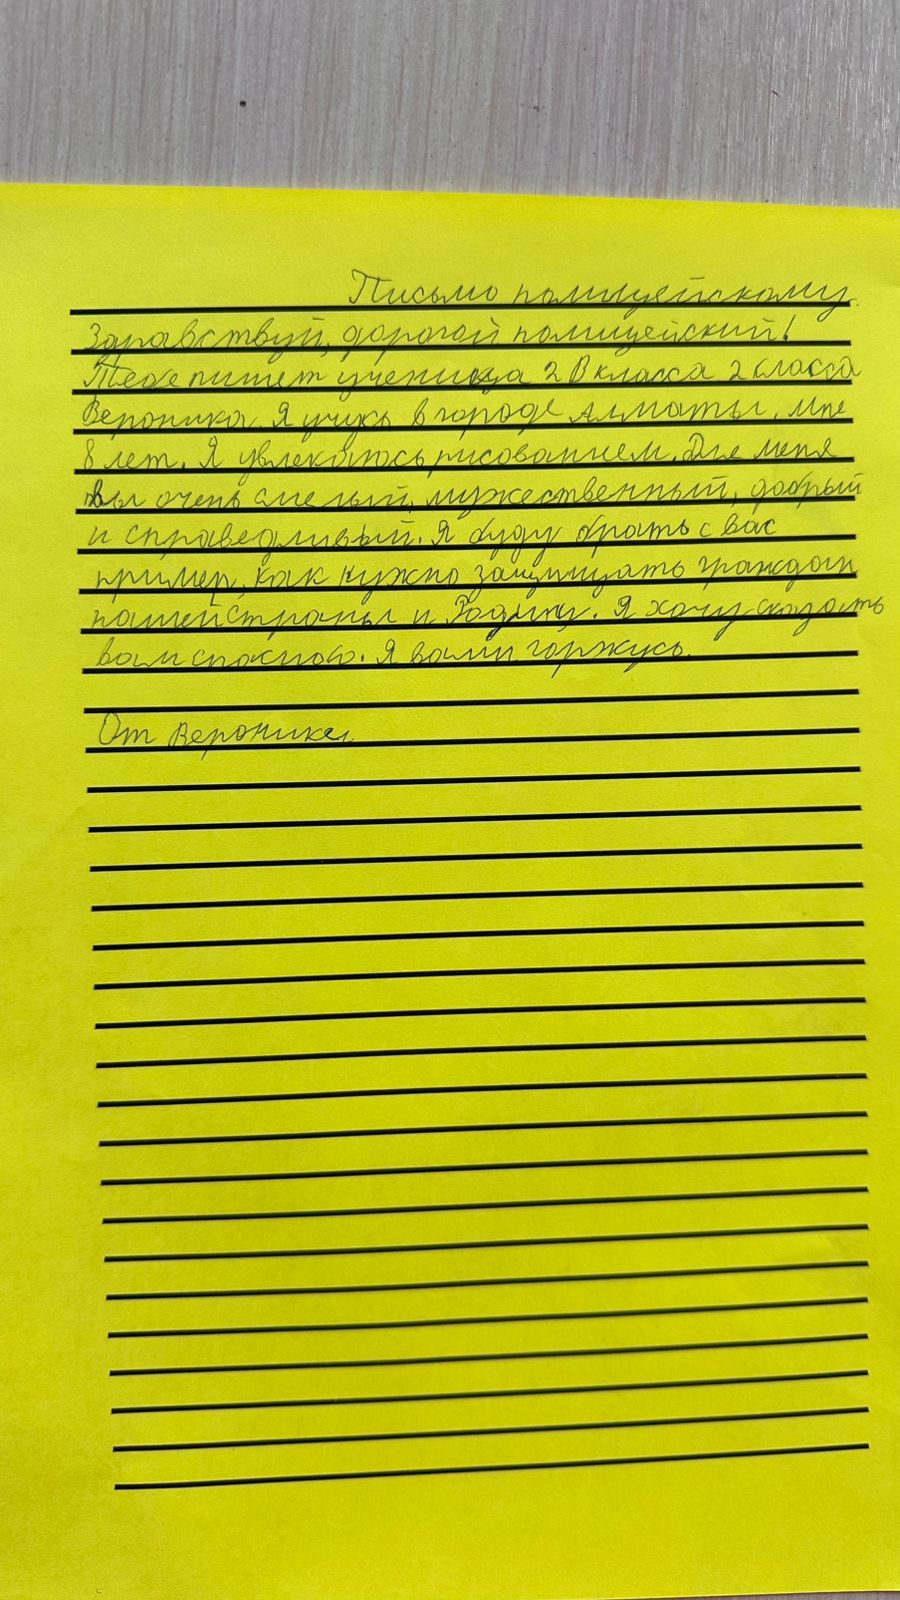 Письмо полицейскому.
Здравствуй, дорогой полицейский!
Тебе пишет ученица 2 В класса 2 класса
Вероника. Я учусь в городе Алматы. Мне
8 лет. Я увлекаюсь рисованием. Для меня
вы очень смелый, мужественный, добрый
и справедливый. Я буду брать с вас
пример, как нужно защищать граждан
нашей страны и Родину. Я хочу сказать
вам спасибо. Я вами горжусь.
От Вероники.